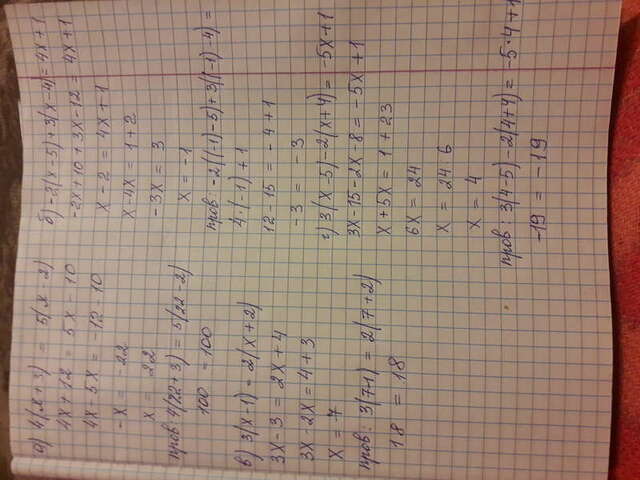 а) 4(x+3) = 5(x-2)
4x+12 = 5x-10
4x-5x = -12-10
-x = -22
x = 22
пров: 4(22+3) = 5(22-2)
100 = 100
в) 3(x-1) = 2(x+2)
3x-3 = 2x+4
3x-2x = 4+3
x = 7
пров: 3(7-1) = 2(7+2)
18 = 18
б) -2(x-5)+3(x-4) = 4x+1
-2x+10+3x-12 = 4x+1
x-2 = 4x+1
x-4x = 1+2
-3x = 3
x = -1
пров: -2((-1)-5)+3((-1)-4) =
4·(-1)+1
12-15 = -4+1
-3 = -3
г) 3(x-5)-2(x+4) = -5x+1
3x-15-2x-8 = -5x+1
x+5x = 1+23
6x = 24
x = 24:6
x = 4
пров: 3(4-5)-2(4+4) = -5·4+1
-19 = -19